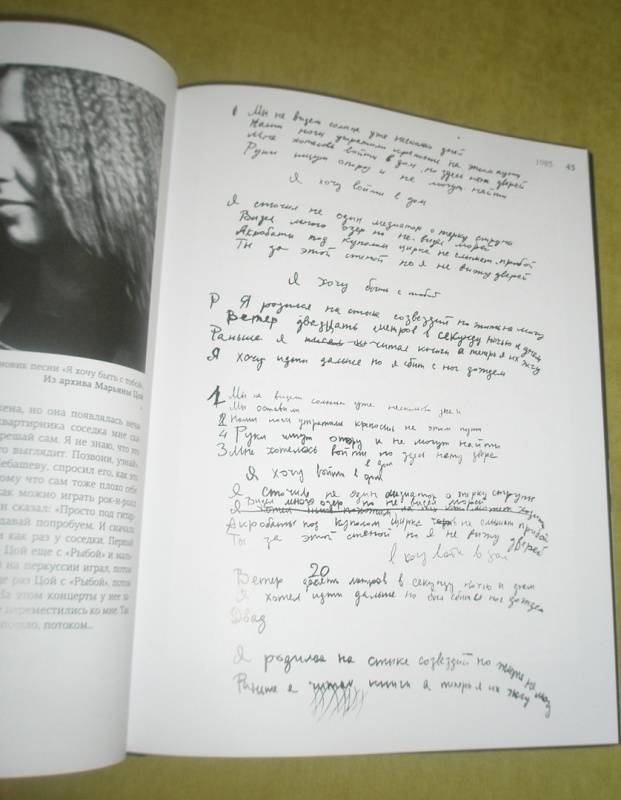 новик песни «Я хочу быть с тобой»
Из архива Марьяны Цой
ена, но она появлялась
квартирника соседка мне ска
решай сам. Я не знаю, что это
о выглядит. Позвони, узнай
Лебашеву, спросил его, как это
ому что сам тоже плохо себе
как можно играть рок-н-ролл
н сказал: «Просто под гитар
давай попробуем. И сначала
я как раз у соседки. Первый
Цой еще с «Рыбой» и
й на перкуссии играл, потом
ще раз Цой с «Рыбой», потом
За этом концерты у нее за
переместились ко мне. Так
пошло, потоком...
1985 45
1 Мы не видели солнца уже несколько дней
Наши ноги утратили крепость на этом пути
Мне хотелось войти в дом но здесь нет дверей
Руки ищут опору и не могут найти
Я хочу войти в дом
Я сточил не один медиатор о терку струн
Видел много озер но не видел морей
Акробаты под куполом цирка не слышат прибой
Ты за этой стеной но я не вижу дверей
Я хочу быть с тобой
Р Я родился на стыке созвездий но жить не могу
Ветер двадцать метров в секунду ночью и днем
Раньше я читал книги а теперь я их жгу
Я хочу идти дальше но я сбит с ног дождем
1 Мы не видели солнца уже несколько дней
Мы оставили
2 Наши ноги утратили крепость на этом пути
4 Руки ищут опору и не могут найти
3 Мне хотелось войти но здесь нету двере
в дом
Я хочу войти в дом
Я сточил не один медиатор о терку струн
Видел много озер но не видел морей
Акробаты под куполом цирка не слышат прибой
Ты за этой стеной но я не вижу дверей
Я хочу войти в дом
20
Ветер девять метров в секунду ночью и днем
Я хотел идти дальше но был сбит с ног дождем
Двад
Я родился на стыке созвездий но жить не могу
Раньше я читал книги а теперь я их жгу